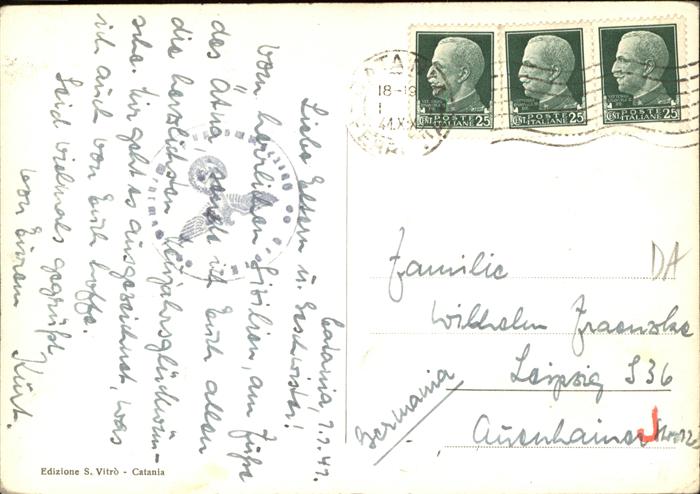 Catania, 1.1.41.
Liebe Eltern u. Geschwister!
vom herrlichen Sizilien, am Fuße
des Ätna, sende ich Euch allen
die herzlichsten Neujahrsglückwün-
sche. Mir geht es ausgezeichnet, was
ich auch von Euch hoffe.
Seid vielmals gegrüßt
von Eurem Kurt.
Edizione S. Vitrò - Catania
CATANIA
18-19
1
41.XIX
POSTE
ITALIANE
CENT. 25
POSTE
ITALIANE
CENT. 25
POSTE
ITALIANE
CENT. 25
DA
Familie
Wilhelm
Leipzig S36
Germania